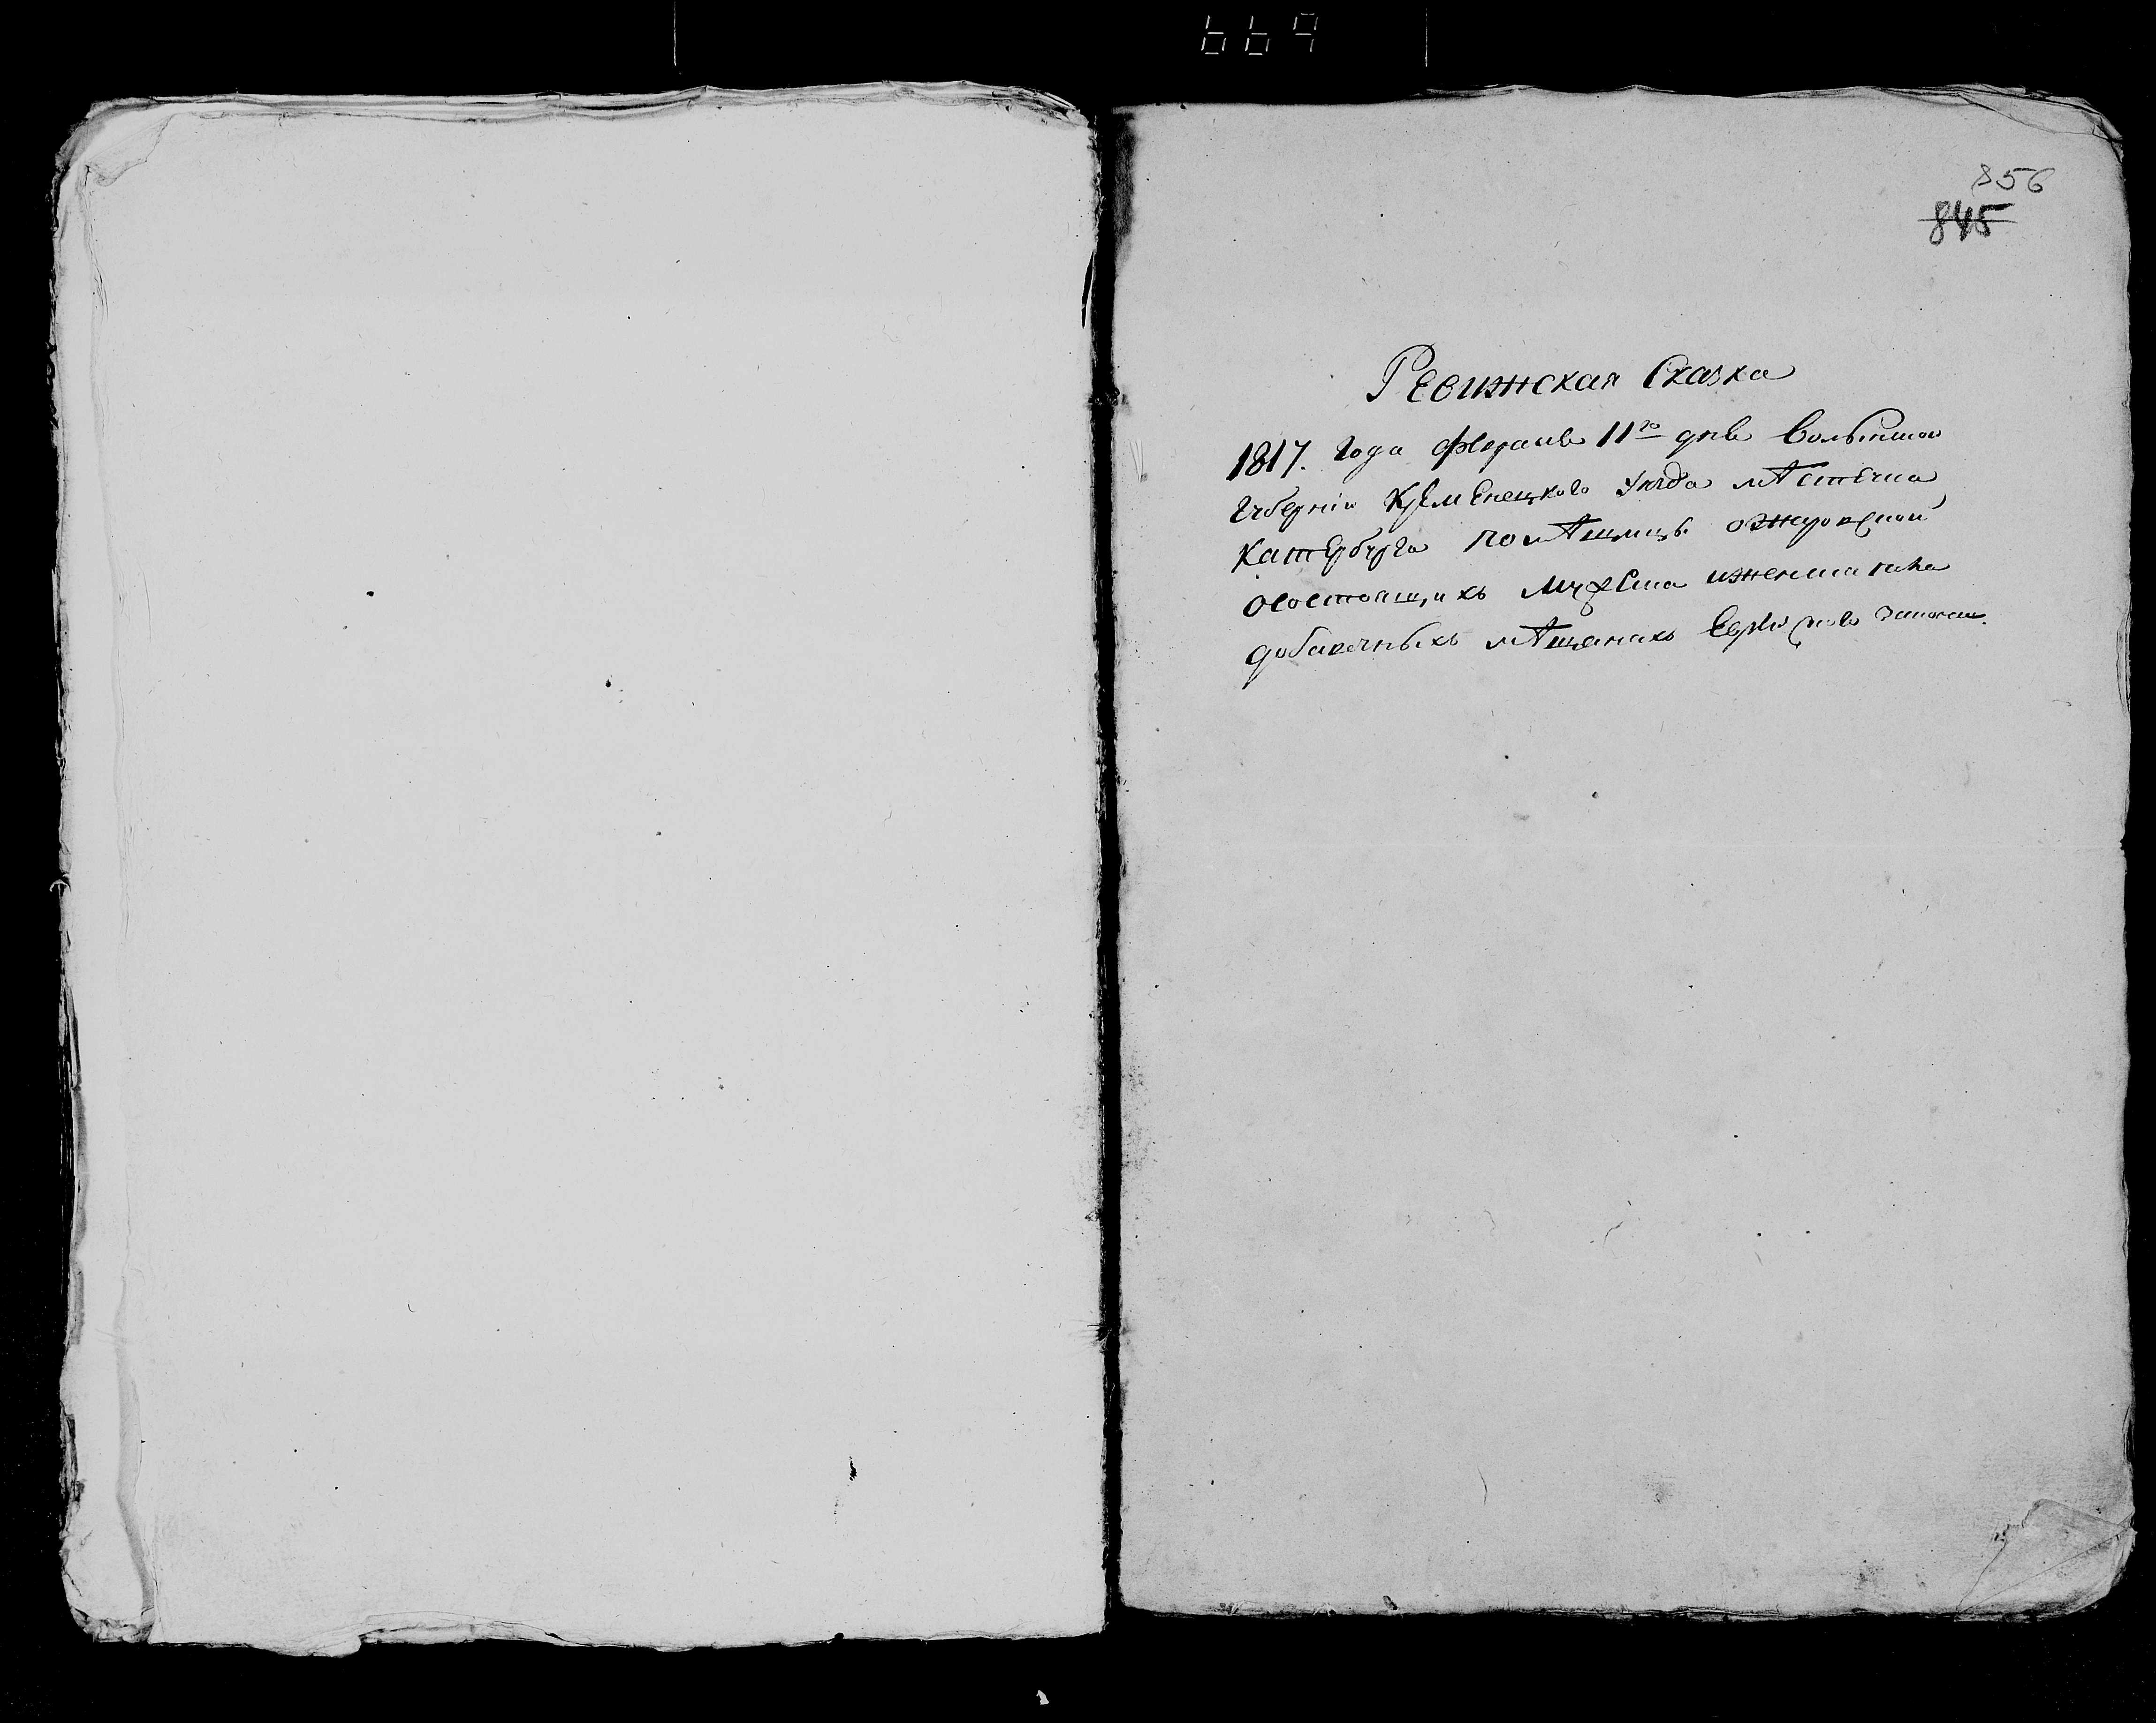 669
856
845
Ревижская Сказка
1817. Года Февраля 11го дня Волынской
Губерніи Кременецкого Уѣзда мѣстечка
Катербурга помѣщицѣ Ожаровской
осостоящихъ Мужеска иженска пола
добавочныхъ мѣщанахъ Еврейского Закона